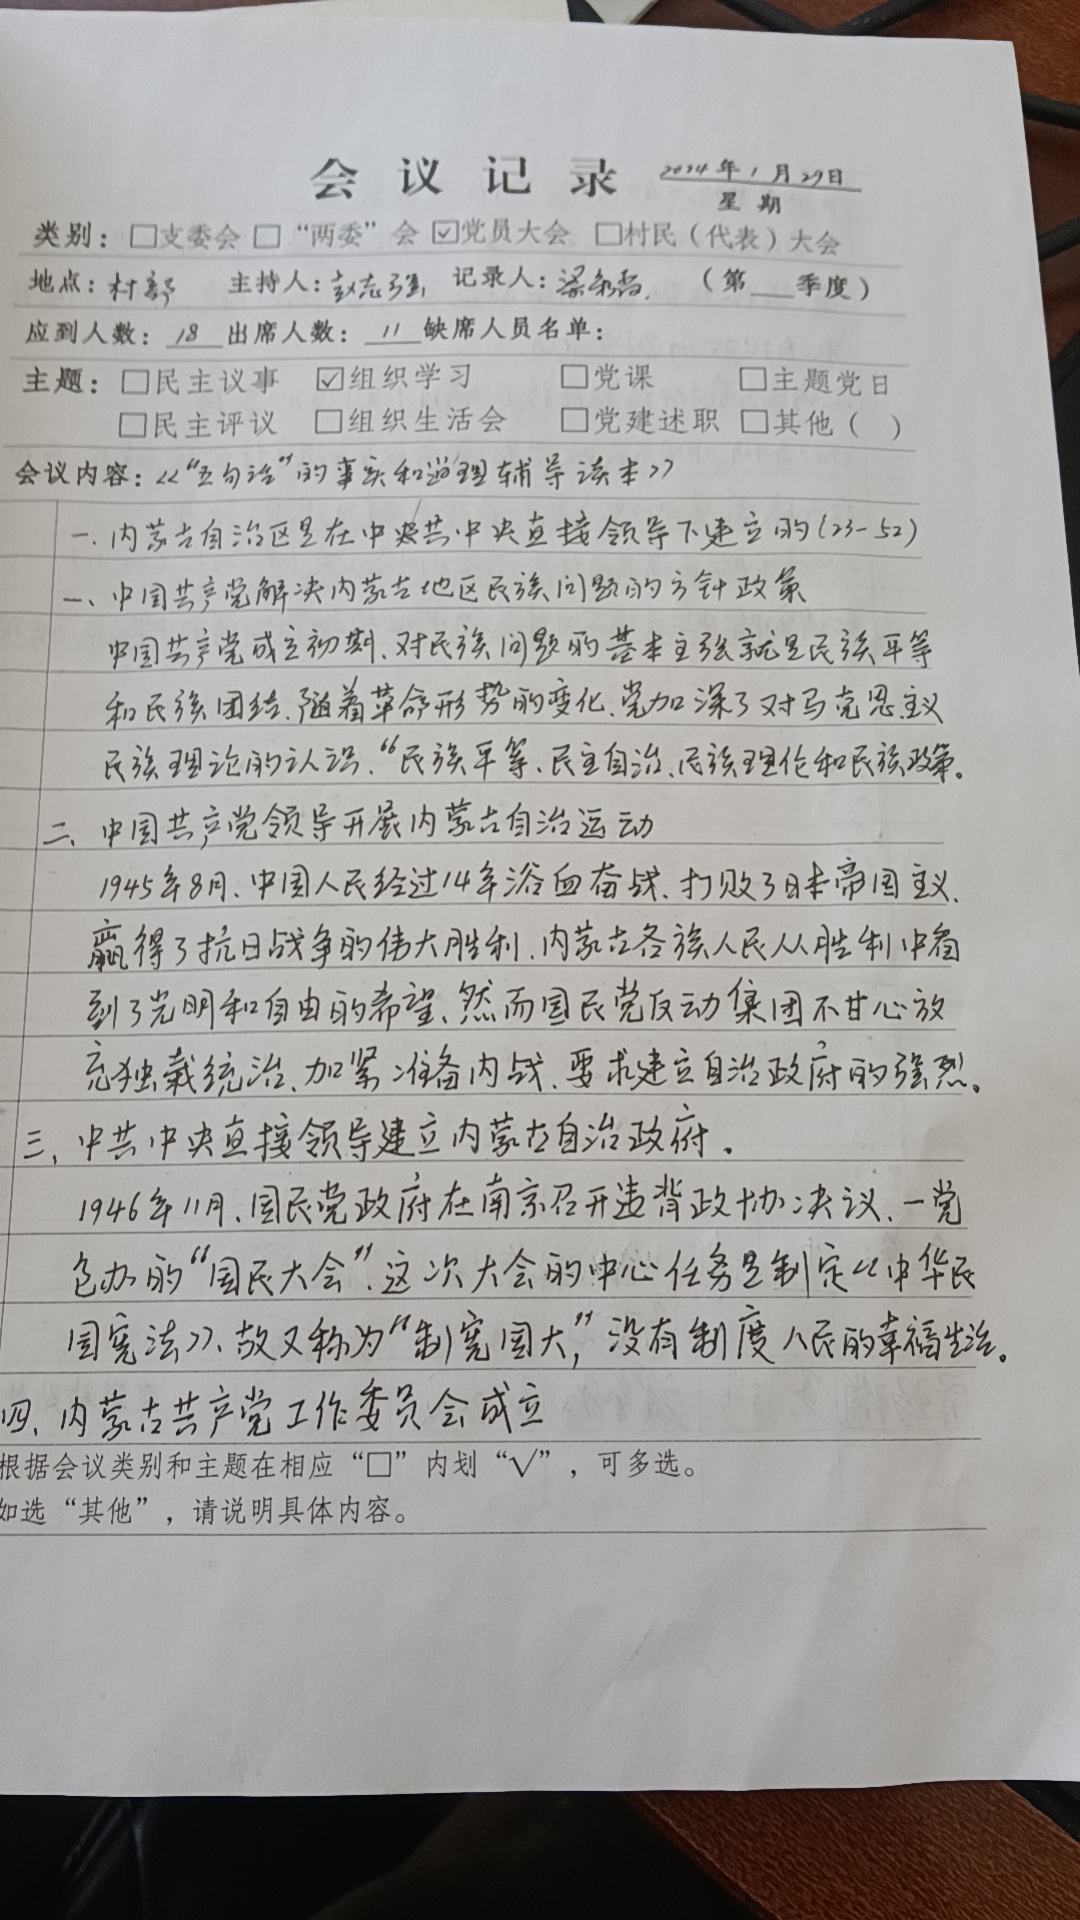 会议记录 2024年1月29日
星期
类别：□支委会 □“两委”会 ☑党员大会 □村民（代表）大会
地点：村部 主持人：赵志强 记录人：梁 （第___季度）
应到人数：18 出席人数：11 缺席人员名单：
主题：□民主议事 ☑组织学习 □党课 □主题党日
□民主评议 □组织生活会 □党建述职 □其他（ ）
会议内容：《“五句话”的事实和道理辅导读本》
一、内蒙古自治区是在中央共中央直接领导下建立的（23-52）
一、中国共产党解决内蒙古地区民族问题的方针政策
中国共产党成立初期、对民族问题的基本主张就是民族平等
和民族团结、随着革命形势的变化、党加深了对马克思主义
民族理论的认识、“民族平等、民主自治、民族理伦和民族政策。
二、中国共产党领导开展内蒙古自治运动
1945年8月、中国人民经过14年浴血奋战、打败了日本帝国主义、
赢得了抗日战争的伟大胜利、内蒙古各族人民从胜利中看
到了光明和自由的希望、然而国民党反动集团不甘心放
充独裁统治、加紧准备内战、要求建立自治政府的强烈。
三、中共中央直接领导建立内蒙古自治政府。
1946年11月、国民党政府在南京召开违背政协决议、一党
包办的“国民大会”、这次大会的中心任务是制定《中华民
国宪法》、故又称为“制宪国大”，没有制度人民的幸福生活。
四、内蒙古共产党工作委员会成立
根据会议类别和主题在相应“□”内划“√”，可多选。
如选“其他”，请说明具体内容。